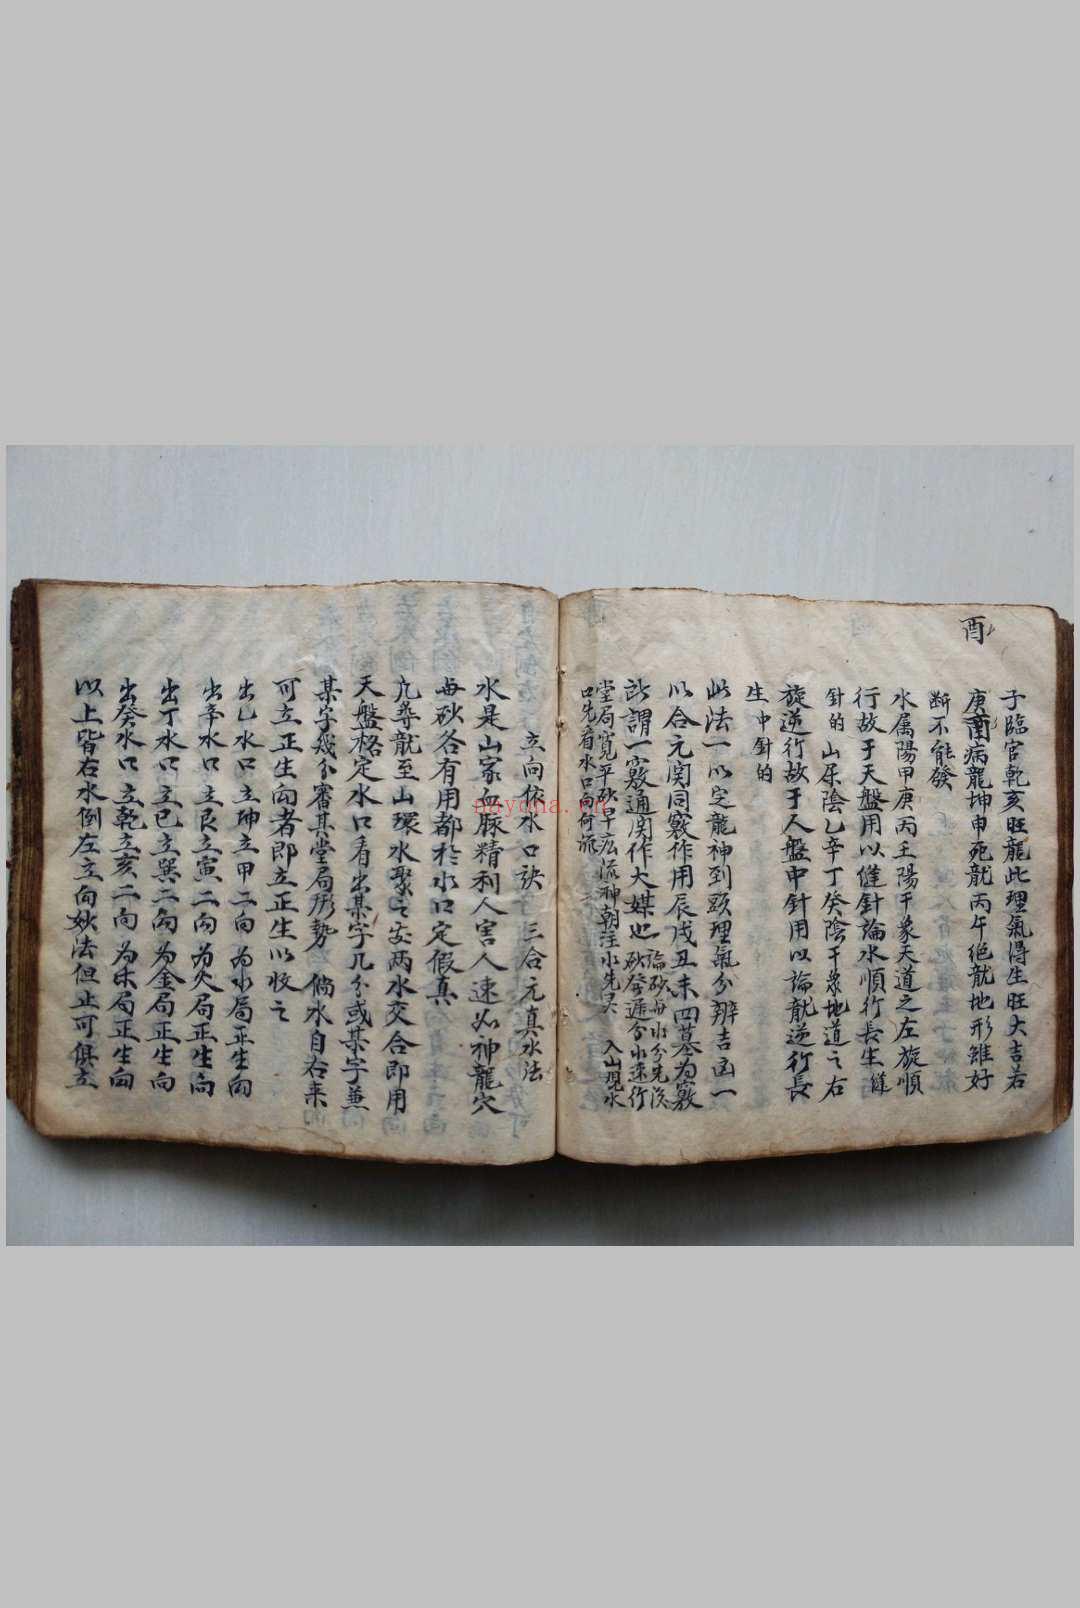 酉
子臨官乾亥旺龍此理氣得生旺大吉若
庚酉病龍坤申死龍丙午絕龍地形雖好
斷不能發
水属陽甲庚丙壬陽干象天道之左旋順
行故于天盤用以縫針論水順行長生縫
針的 山属陰乙辛丁癸陰干象地道之右
旋逆行故于人盤中針用以論龍逆行長
生中針的
此法一以定龍神到頭理氣分辨吉凶一
以合元関同竅作用辰戌丑未四墓为竅
此謂一竅通関作大媒也 論砂与水分先後
砂發遲兮水速行
堂局寬平砂早応流神朝注水先灵 入山現水
口先看水口向何派
立向依水口訣 三合元真水法
水是山家血脈精利人害人速如神龍穴
与砂各有用都於水口定假真
凢尋龍至山環水聚之處两水交合即用
天盤格定水口看出某字几分或某字兼
某字幾分審其堂局形勢 倘水自右来
可立正生向者即立正生以收之
出乙水口立坤立申二向为水局正生向
出辛水口立艮立寅二向为火局正生向
出丁水口立巳立巽二向为金局正生向
出癸水口立乾立亥二向为木局正生向
以上皆右水倒左立向妙法但止可俱立
nayona.cn